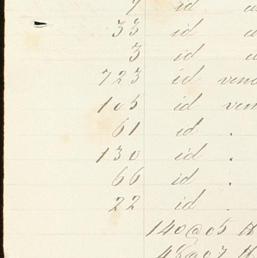 7 id
33 id
3 id
723 id vend
105 id ven
61 id .
130 id .
66 id .
22 id .
140@05 lt
45@07 lt